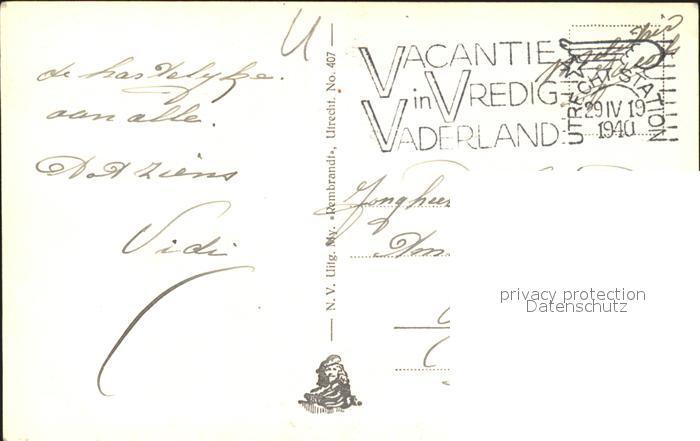 de hartelyke.
aan alle.
Tot ziens
Vidi
N. V. Uitg. My. „Rembrandt”, Utrecht. No. 407
VACANTIE
in VREDIG
VADERLAND
UTRECHT STATION
29 IV 19
1940
Jongheer
privacy protection
Datenschutz